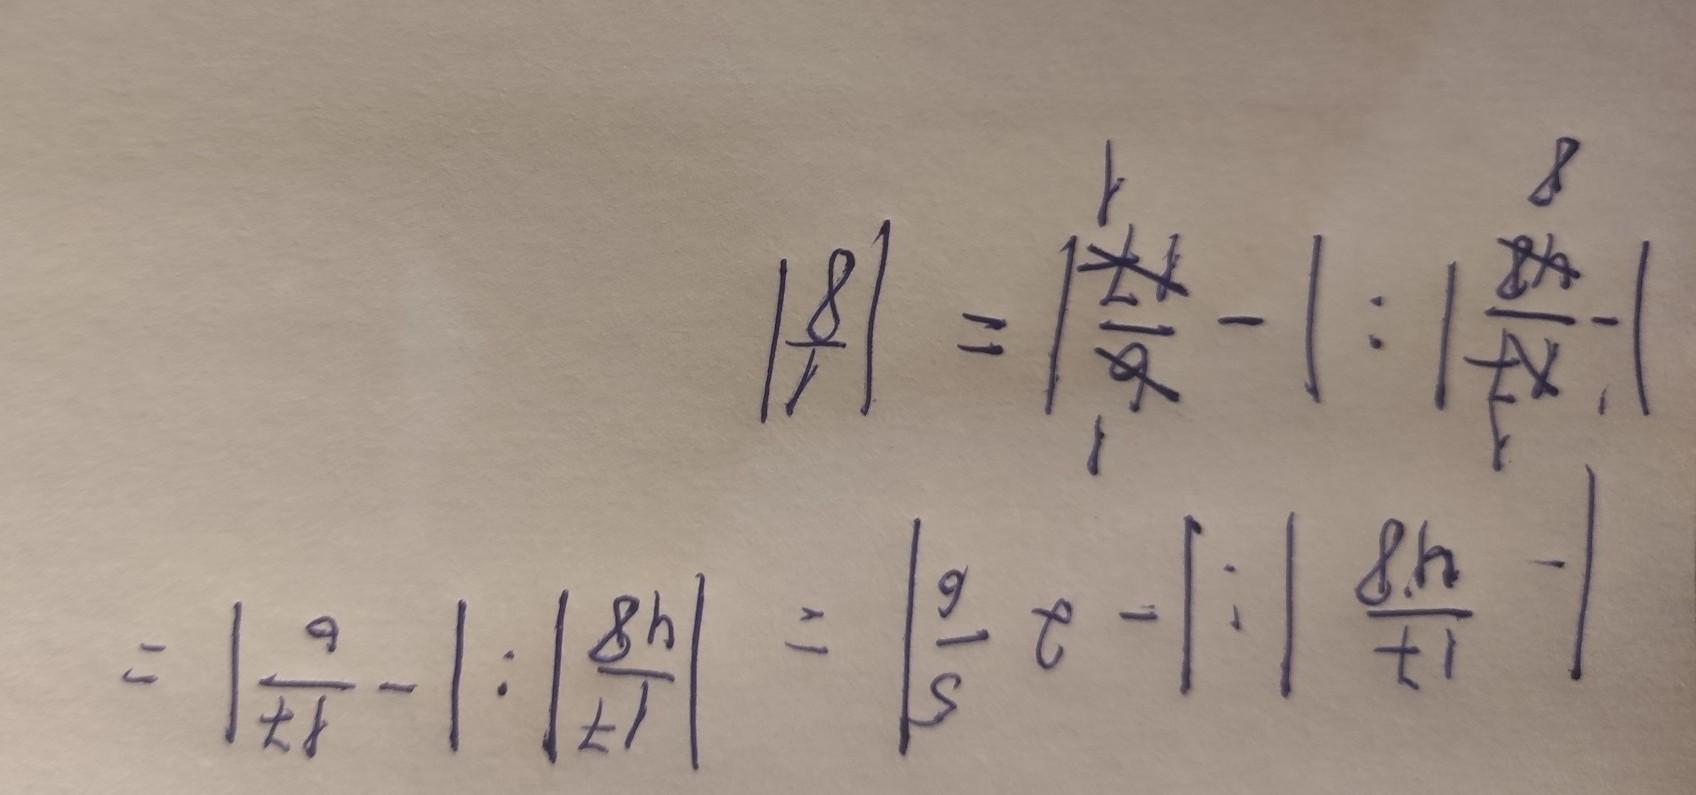 |- 17/48| : |- 2 5/6| = |17/48| : |- 17/6| =
1 1
|- 17/48| : |- 6/17| = |1/8|
8 1